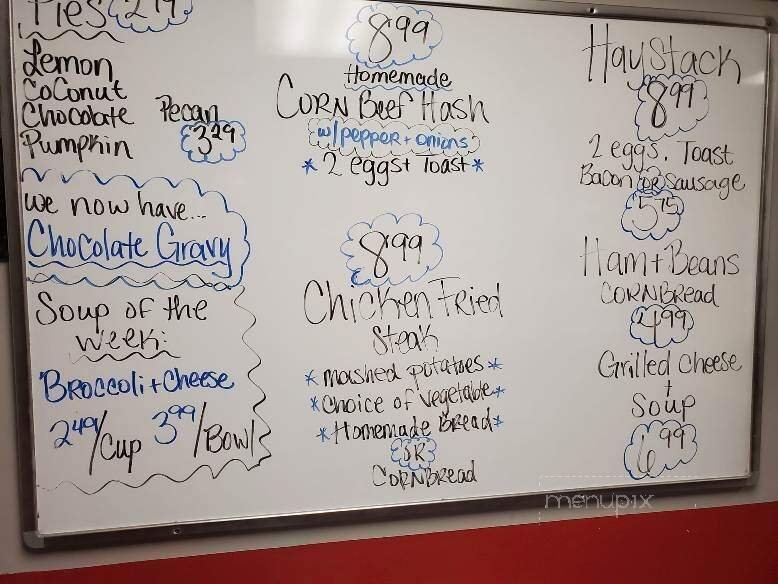 Pies 2.79
Lemon
Coconut
Chocolate Pecan
Pumpkin 3.29
we now have...
Chocolate Gravy
Soup of the
week:
Broccoli + Cheese
2.49/Cup 3.99/Bowl
8.99
Homemade
Corn Beef Hash
w/pepper + onions
* 2 eggs + Toast *
8.99
Chicken Fried
Steak
* mashed potatoes *
* Choice of vegetable *
* Homemade Bread *
OR
CornBread
Haystack
8.99
2 eggs, Toast
Bacon OR Sausage
5.75
Ham + Beans
CornBread
4.99
Grilled Cheese
+
Soup
6.99
menupix